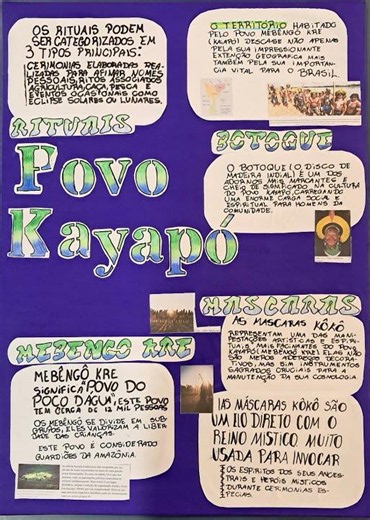 OS RITUAIS PODEM
SER CATEGORIZADOS EM
3 TIPOS PRINCIPAIS:
CERIMONIAS ELABORADAS REA-
LIZADAS PARA AFIMAR NOMES
PESSOAIS, RITOS ASSOCIADOS
AGRICULTURA, CAÇA, PESCA E
EVENTOS OCASIONAIS COMO
ECLIPSE SOLARES OU LUNARES.
RITUAIS
O TERRITÓRIO HABITADO
PELO POVO MEBÊNGÔ KRE
(KAIAPO) DESCASE NÃO APENAS
PELA SUA IMPRESSIONANTE
EXTENÇÃO GEOGRAFICA MAIS
TAMBÉM PELA SUA IMPORTAN-
CIA VITAL PARA O BRASIL
BOTOQUE
O BOTOQUE (O DISCO DE
MADEIRA INDIAL) É UM DOS
ADORNOS MAIS MARCANTES E
CHEIO DE SIGNFICADO NA CULTURA
DO POVO KAYAPO, CARREGANDO
UMA ENORME CARGA SOCIAL E
ESPIRITUAL PARA HOMENS DA
COMUNIDADE.
Povo
Kayapó
MASCARAS
AS MASCARAS KÔKÔ
REPRESENTAM UMA DAS MANI-
FESTAÇÕES ARTISTICAS E ESPIRI-
TUAIS MAIS FACINANTES DO POVO
KAYAPO (MEBENGO KRE) ELAS NÃO
SÃO MEROS ADEREÇOS DECORA-
TIVOS MAS SIM INSTRUMENTOS
SAGRADOS CRUCIAIS PARA A
MANUTENÇÃO DA SUA COSMOLOGIA.
MEBENGO KRE
MEBÊNGÔ KRE
SIGNIFICA "POVO DO
POÇO DAGUA", ESTE POVO
TEM CERCA DE 12 MIL PESSOAS
OS MEBÊNGO SE DIVIDE EM SUB-
GRUPOS, ELES VALORIZAM A LIBER
DADE DAS CRIANÇAS.
ESTE POVO É CONSIDERADO
GUARDIÕES DA AMAZÔNIA.
AS MÁSCARAS KÔKÔ SÃO
UM ELO DIRETO COM O
REINO MISTICO MUITO
USADA PARA INVOCAR
OS ESPIRITOS DOS SEUS ANCES-
TRAIS E HEROIS MISTICOS
DURANTE CERIMONIAS ES-
PECIAIS.